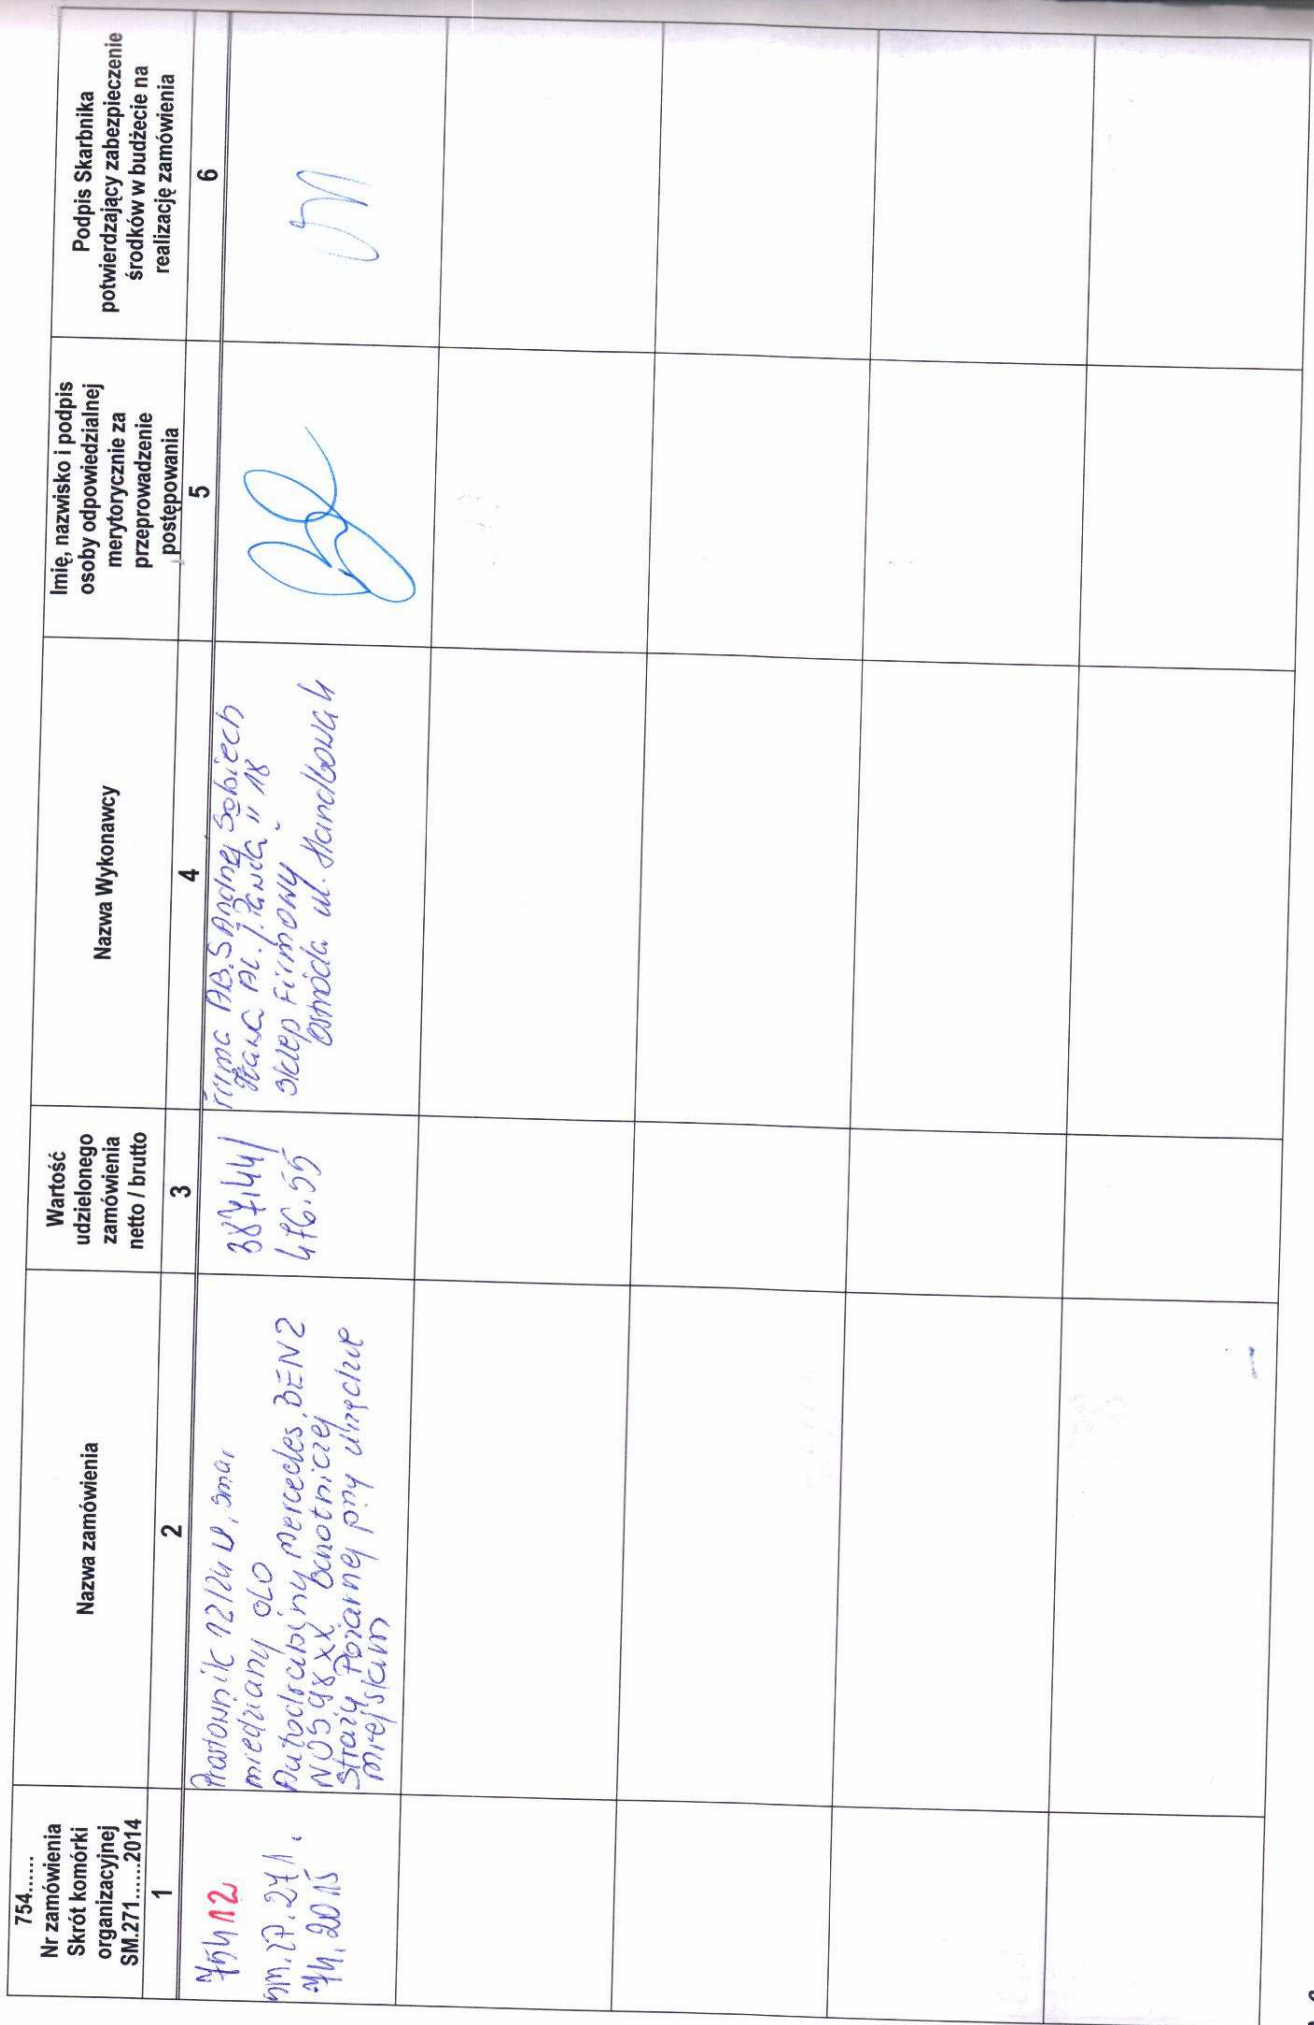 754......
Nr zamówienia
Skrót komórki
organizacyjnej
SM.271......2014
Nazwa zamówienia
Wartość
udzielonego
zamówienia
netto / brutto
Nazwa Wykonawcy
Imię, nazwisko i podpis
osoby odpowiedzialnej
merytorycznie za
przeprowadzenie
postępowania
Podpis Skarbnika
potwierdzający zabezpieczenie
środków w budżecie na
realizację zamówienia
1
2
3
4
5
6
75412
SM.ZP.271.
74.2015
Prostownik 12/24 V, smar
miedziany OLO
Autodrabiny Mercedes BENZ
NOS 98XX Ochotniczej
Straży Pożarnej przy Urzędzie
Miejskim
387,44/
476,55
Firma AB.S Andrzej Sobiech
Iława Al. J. Pawła II 18
Sklep Firmowy
Ostróda ul. Handlowa 4